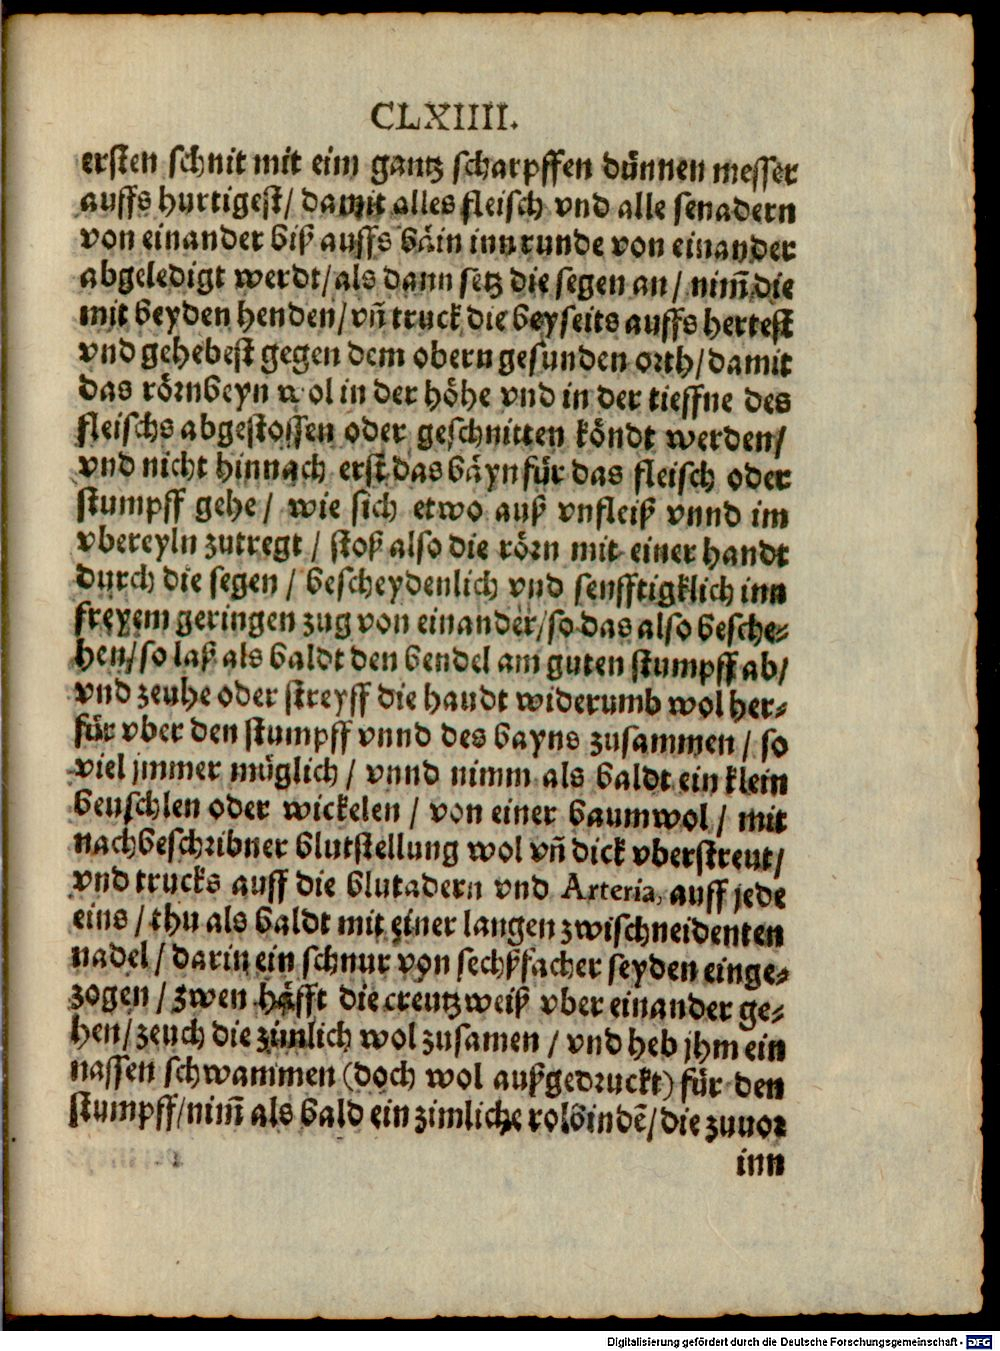 CLXIIII.
ersten schnit mit eim gantz scharpffen dünnen messer
auffs hurtigest/ damit alles fleisch vnd alle senadern
von einander biß auffs bäin inn runde von einander
abgeledigt werdt/ als dann setz die segen an/ nim̃ die
mit beyden henden/ vñ truck die beyseits auffs hertest
vnd gehebest gegen dem obern gesunden orth/ damit
das rörnbeyn wol in der höhe vnd in der tieffne des
fleischs abgestossen oder geschnitten köndt werden/
vnd nicht hinnach erst das bäyn für das fleisch oder
stumpff gehe/ wie sich etwo auß vnfleiß vnnd im
vbereyln zutregt/ stoß also die rörn mit einer handt
durch die segen/ bescheydenlich vnd senfftigklich inn
freyem geringen zug von einander/ so das also besche-
hen/ so laß als baldt den bendel am guten stumpff ab/
vnd zeuhe oder streyff die haudt widerumb wol her-
für vber den stumpff vnnd des bayns zusammen/ so
viel jmmer müglich/ vnnd nimm als baldt ein klein
beuschlen oder wickelen/ von einer baumwol/ mit
nachbeschribner blutstellung wol vñ dick vberstreut/
vnd trucks auff die blutadern vnd Arteria, auff jede
eins/ thu als baldt mit einer langen zwischneidenten
nadel/ darin ein schnur von sechßfacher seyden einge-
zogen/ zwen häfft die creutzweiß vber einander ge-
hen/ zeuch die zimlich wol zusamen/ vnd heb jhm ein
nassen schwammen (doch wol außgedruckt) für den
stumpff/ nim̃ als bald ein zimliche rolbindẽ/ die zuuor
inn
Digitalisierung gefördert durch die Deutsche Forschungsgemeinschaft - DFG